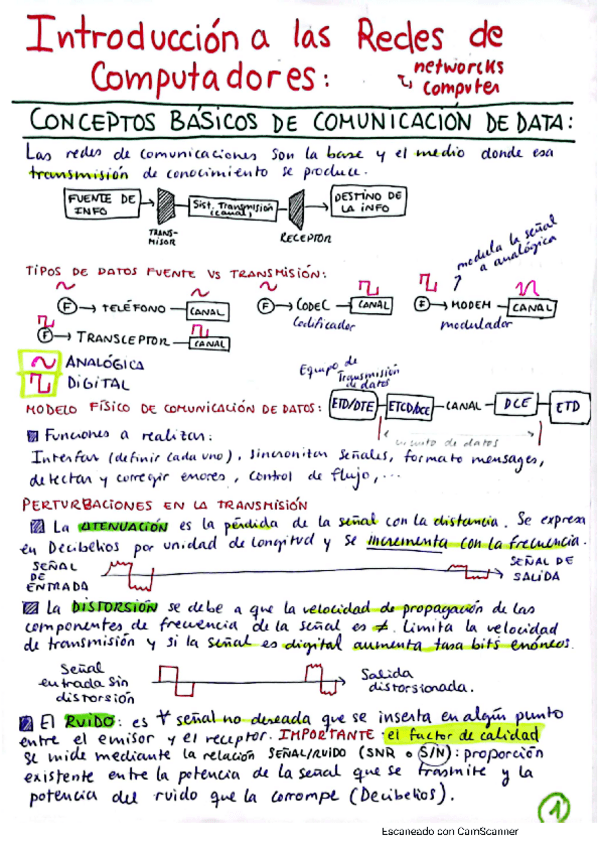 Introducción a las Redes de
Computadores:
networcks
Computer
CONCEPTOS BÁSICOS DE COMUNICACIÓN DE DATA:
Las redes de comunicaciones son la base y el medio donde esa
transmisión de conocimiento se produce.
FUENTE DE
INFO
TRANS-
MISOR
Sist. Transmisión
(canal)
RECEPTOR
DESTINO DE
LA INFO
TIPOS DE DATOS FUENTE VS TRANSMISIÓN:
modula la señal
a analógica
F → TELÉFONO — CANAL
F → CODEC — CANAL
Codificador
F → MODEM — CANAL
modulador
F → TRANSCEPTOR — CANAL
ANALÓGICA
DIGITAL
Equipo de
Transmisión
de datos
MODELO FÍSICO DE COMUNICACIÓN DE DATOS:
ETD/DTE — ETCD/DCE — CANAL — DCE — ETD
circuito de datos
Funciones a realizar:
Interfaz (definir cada uno), sincronizar señales, formato mensajes,
detectar y corregir errores, control de flujo,...
PERTURBACIONES EN LA TRANSMISIÓN
La ATENUACIÓN es la pérdida de la señal con la distancia. Se expresa
en Decibelios por unidad de longitud y se incrementa con la frecuencia.
SEÑAL
DE
ENTRADA
SEÑAL DE
SALIDA
La DISTORSIÓN se debe a que la velocidad de propagación de las
componentes de frecuencia de la señal es ≠. Limita la velocidad
de transmisión y si la señal es digital aumenta tasa bits erróneos.
Señal
entrada sin
distorsión
Salida
distorsionada.
El RUIDO: es ∀ señal no deseada que se inserta en algún punto
entre el emisor y el receptor. IMPORTANTE el factor de calidad
se mide mediante la relación SEÑAL/RUIDO (SNR o S/N): proporción
existente entre la potencia de la señal que se trasmite y la
potencia del ruido que la corrompe (Decibelios).
1
Escaneado con CamScanner